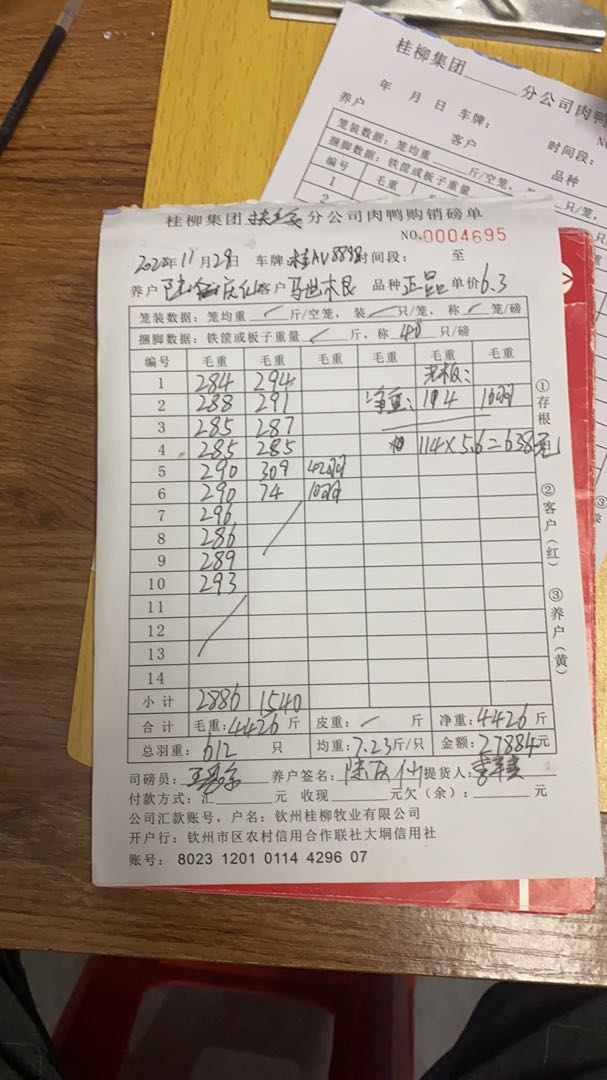 桂柳集团 分公司肉鸭购销磅单
NO.0004695
11月29日 车牌:桂AV8898 时间段: 至
养户 客户 品种 正品 单价 6.3
笼装数据:笼均重 斤/空笼,装 只/笼,称 笼/磅
捆脚数据:铁筐或板子重量 斤,称 40 只/磅
编号 毛重 毛重 毛重 毛重 毛重 毛重
1 284 294 老板:
2 288 291 净重: 114 16羽
3 285 287
4 285 285 114×5.6=638元
5 290 309 42羽
6 290 74 10羽
7 296
8 286
9 289
10 293
11
12
13
14
小计 2886 1540
合计 毛重:4426斤 皮重: 斤 净重:4426斤
总羽重: 612 只 均重:7.23斤/只 金额:27884元
司磅员: 养户签名: 陆庆仙 提货人:
付款方式:汇 元 收现 元欠(余): 元
公司汇款账号,户名:钦州桂柳牧业有限公司
开户行:钦州市区农村信用合作联社大垌信用社
账号: 8023 1201 0114 4296 07
①存根
②客户(红)
③养户(黄)
桂柳集团 分公司肉鸭
年 月 日 车牌: 时间段:
养户 客户 品种
笼装数据:笼均重 斤/空笼,装 只/笼,
捆脚数据:铁筐或板子重量 斤,称
编号 毛重 毛重
1
2